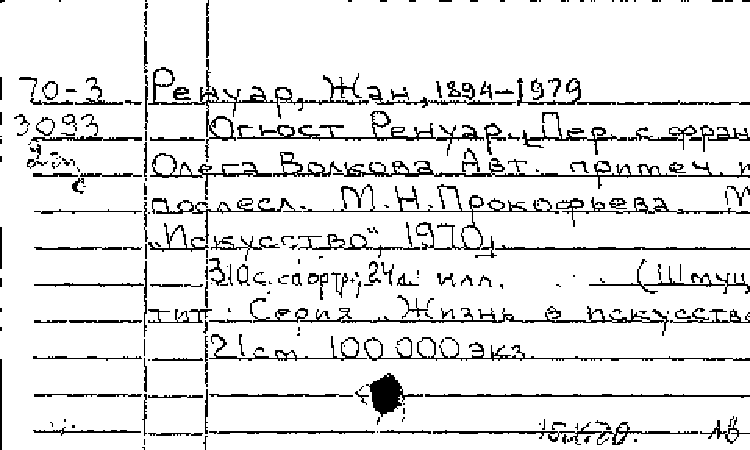 70-3 Ренуар, Жан, 1894-1979
3093 Огюст Ренуар. [Пер. с фран
Олега Волкова. Авт. примеч. и
послесл. М.Н.Прокофьева. М
„Искусство", 1970].
310 с. с портр; 24 л. илл. (Шмуц
тит: Серия „Жизнь в искусстве
21 см. 100 000 экз.